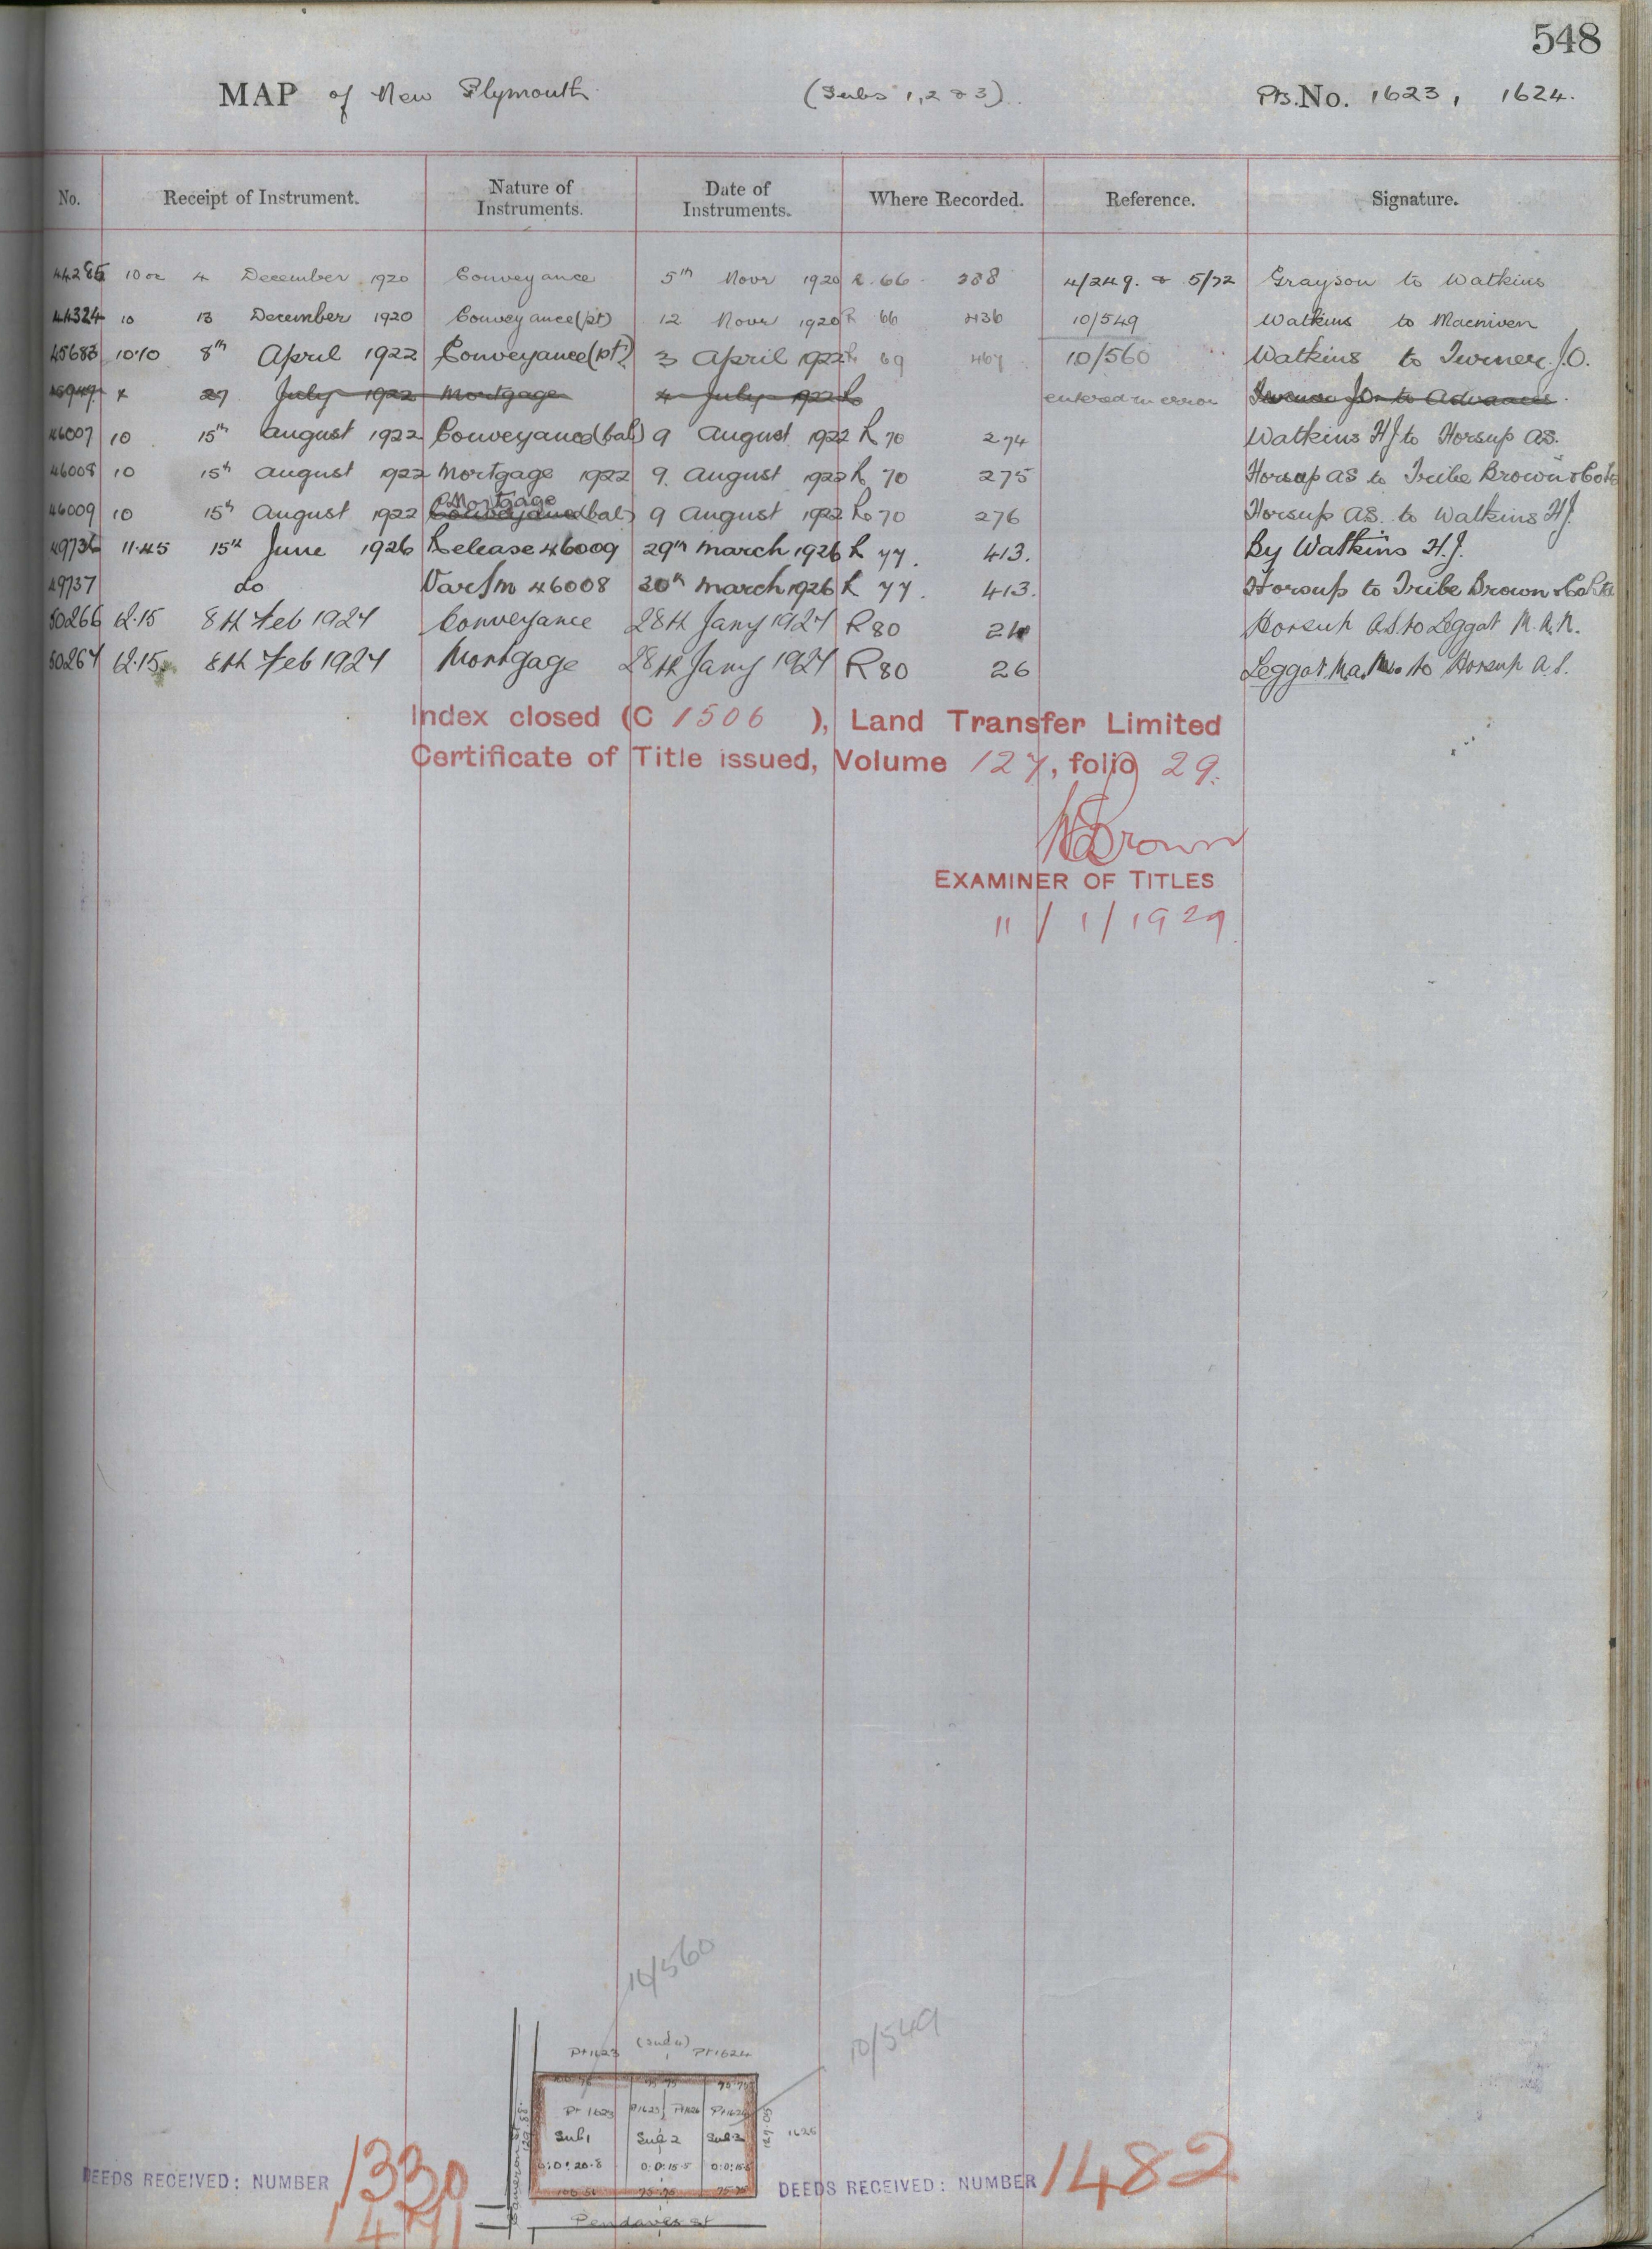 548
MAP of New Plymouth (Subs 1, 2 & 3) Pts. No. 1623, 1624.
No. Receipt of Instrument. Nature of Instruments. Date of Instruments. Where Recorded. Reference. Signature.
44285 10 4 December 1920 Conveyance 5th Novr 1920 R. 66 388 4/249. & 5/72 Grayson to Watkins
44324 10 13 December 1920 Conveyance (pt) 12 Novr 1920 R 66 436 10/549 Watkins to Macniven
45683 10.10 8th April 1922 Conveyance (pt) 3 April 1922 R 69 467 10/560 Watkins to Turner. J.O.
x 27 July 1922 Mortgage 4 July 1922 R entered in error Turner J.O. to Advances
46007 10 15th August 1922 Conveyance (bal) 9 August 1922 R 70 274 Watkins HJ to Horsup AS.
46008 10 15th August 1922 Mortgage 1922 9. August 1922 R 70 275 Horsup AS to Tribe Brown & Co
46009 10 15th August 1922 Mortgage Conveyance (bal) 9 August 1922 R 70 276 Horsup A.S. to Watkins HJ.
49736 11.45 15th June 1926 Release 46009 29th March 1926 R 77. 413. By Watkins H.J.
49737 do Var/m 46008 30th March 1926 R 77. 413. Horsup to Tribe Brown & Co
50266 12.15 8th Feb 1927 Conveyance 28th Jany 1927 R 80 24 Horsup A.S. to Leggat M.A.N.
50267 12.15. 8th Feb 1927 Mortgage 28th Jany 1927 R 80 26 Leggat M.A.N. to Horsup A.S.
Index closed (C 1506 ), Land Transfer Limited
Certificate of Title issued, Volume 127, folio 29.
Brown
EXAMINER OF TITLES
11/1/1929.
10/560
10/549
Pt 1623 Pt 1624
Pt 1623 Pt 1623 Pt 1624 Pt 1624
Sub 1 Sub 2 Sub 3
0:0:20.8 0:0:15.5 0:0:15.5
75.75 75.75
Pendarves St
DEEDS RECEIVED: NUMBER 1330
1471
DEEDS RECEIVED: NUMBER 1482